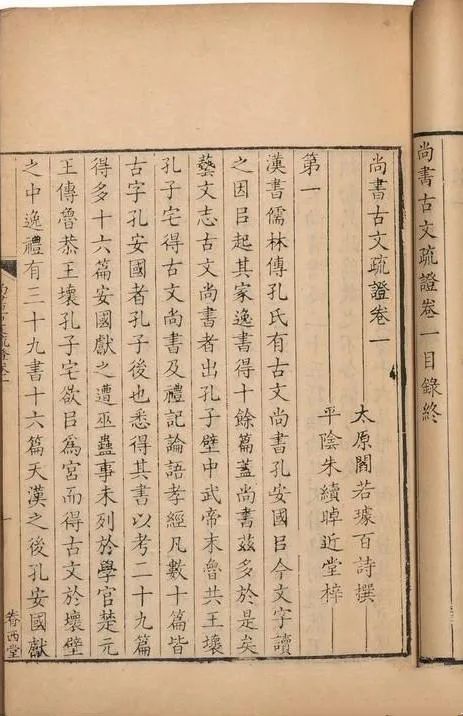 尚書古文疏證卷一目錄終
尚書古文疏證卷一
太原閻若璩百詩撰
平陰朱續晫近堂梓
第一
漢書儒林傳孔氏有古文尚書孔安國㠯今文字讀
之因㠯起其家逸書得十餘篇蓋尚書茲多於是矣
藝文志古文尚書者出孔子壁中武帝末魯共王壞
孔子宅得古文尚書及禮記論語孝經凡數十篇皆
古字孔安國者孔子後也悉得其書以考二十九篇
得多十六篇安國獻之遭巫蠱事未列於學官楚元
王傳魯恭王壞孔子宅欲㠯為宮而得古文於壞壁
之中逸禮有三十九書十六篇天漢之後孔安國獻
尚書古文疏證卷一
一
眷西堂